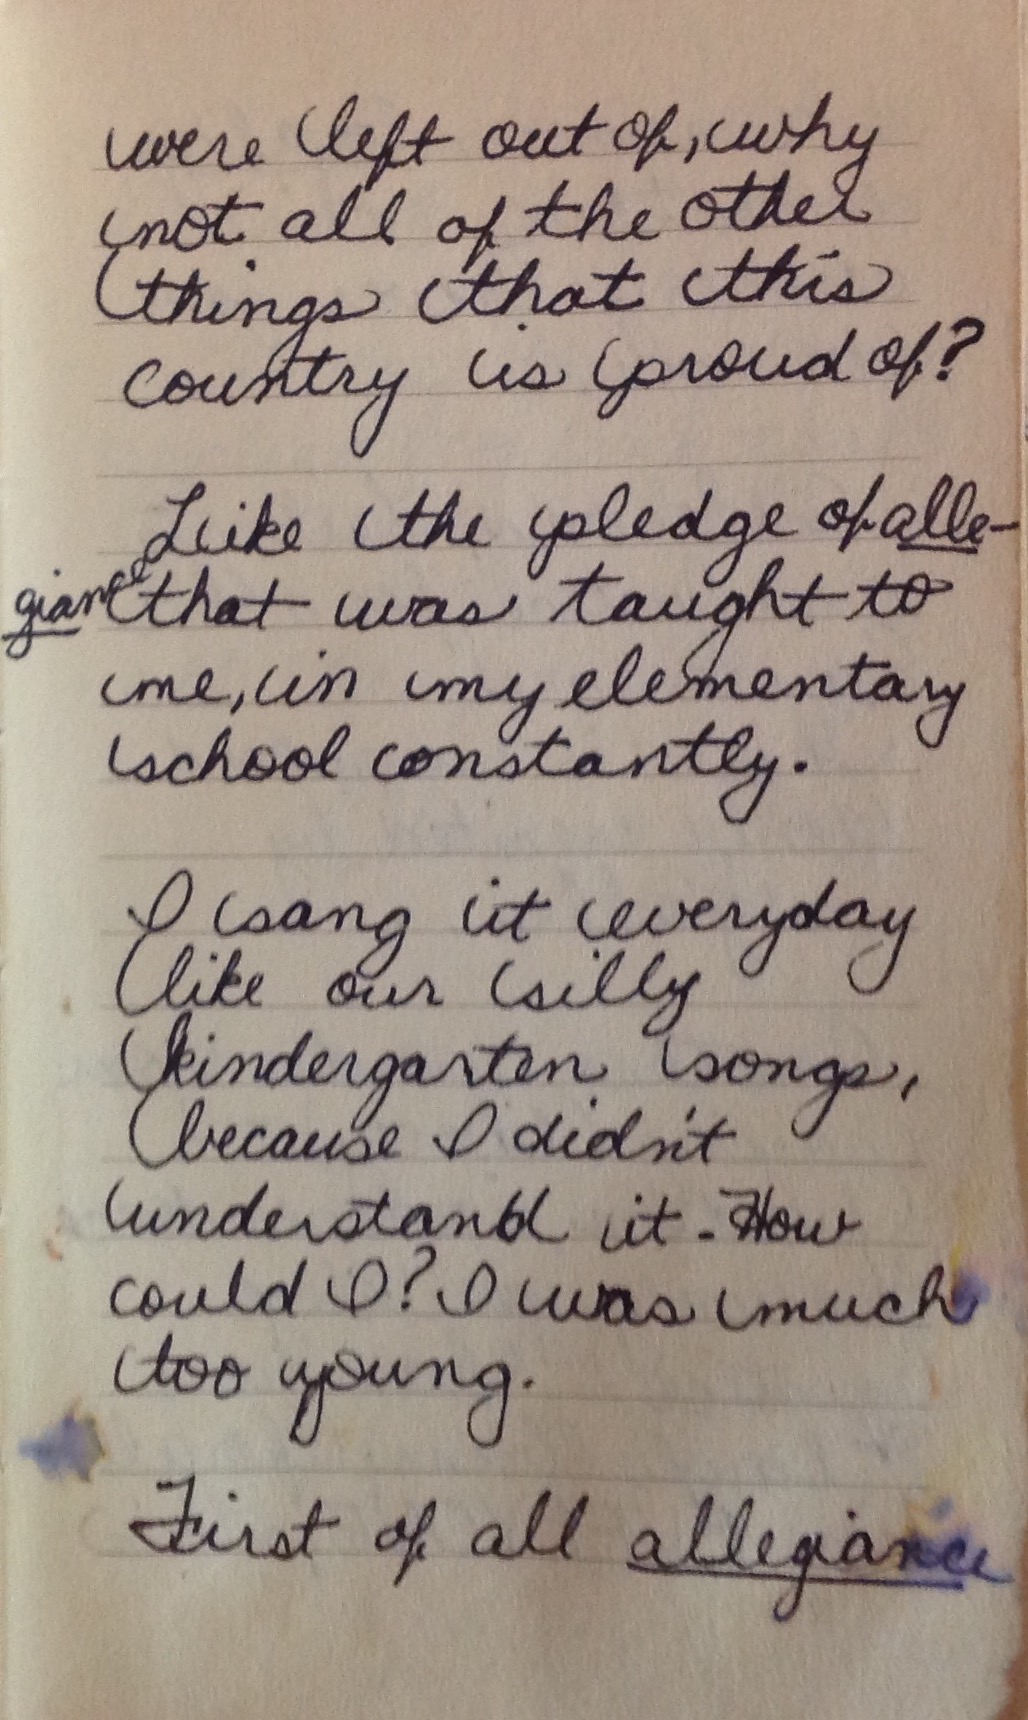 were left out of, why
not all of the other
things that this
country is proud of?
Like the pledge of alle-
giance that was taught to
me, in my elementary
school constantly.
I sang it everyday
like our silly
kindergarten songs,
because I didn't
understand it. How
could I? I was much
too young.
First of all allegiance